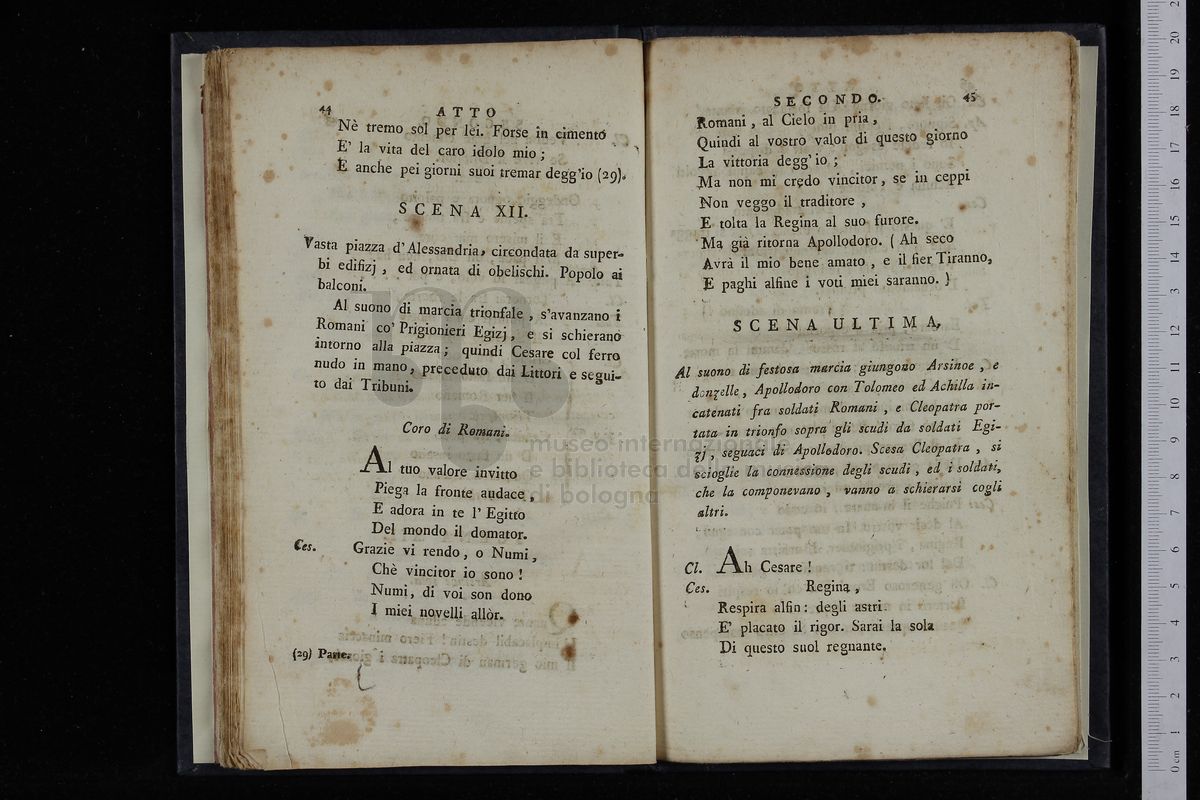 44
ATTO
Nè tremo sol per lei. Forse in cimento
E' la vita del caro idolo mio ;
E anche pei giorni suoi tremar degg'io (29).
SCENA XII.
Vasta piazza d'Alessandria, circondata da super-
bi edifizj , ed ornata di obelischi. Popolo ai
balconi.
Al suono di marcia trionfale , s'avanzano i
Romani co' Prigionieri Egizj, e si schierano
intorno alla piazza ; quindi Cesare col ferro
nudo in mano, preceduto dai Littori e segui-
to dai Tribuni.
Coro di Romani.
Al tuo valore invitto
Piega la fronte audace ,
E adora in te l' Egitto
Del mondo il domator.
Ces. Grazie vi rendo, o Numi,
Chè vincitor io sono !
Numi, di voi son dono
I miei novelli allòr.
(29) Parte.
SECONDO.
45
Romani , al Cielo in pria ,
Quindi al vostro valor di questo giorno
La vittoria degg' io ;
Ma non mi credo vincitor, se in ceppi
Non veggo il traditore ,
E tolta la Regina al suo furore.
Ma già ritorna Apollodoro. ( Ah seco
Avrà il mio bene amato , e il fier Tiranno,
E paghi alfine i voti miei saranno. )
SCENA ULTIMA,
Al suono di festosa marcia giungono Arsinoe , e
donzelle, Apollodoro con Tolomeo ed Achilla in-
catenati fra soldati Romani , e Cleopatra por-
tata in trionfo sopra gli scudi da soldati Egi-
zj , seguaci di Apollodoro. Scesa Cleopatra , si
scioglie la connessione degli scudi , ed i soldati,
che la componevano , vanno a schierarsi cogli
altri.
Cl. Ah Cesare !
Ces. Regina ,
Respira alfin : degli astri
E' placato il rigor. Sarai la sola
Di questo suol regnante.
museo internazionale
e biblioteca della musica
di bologna